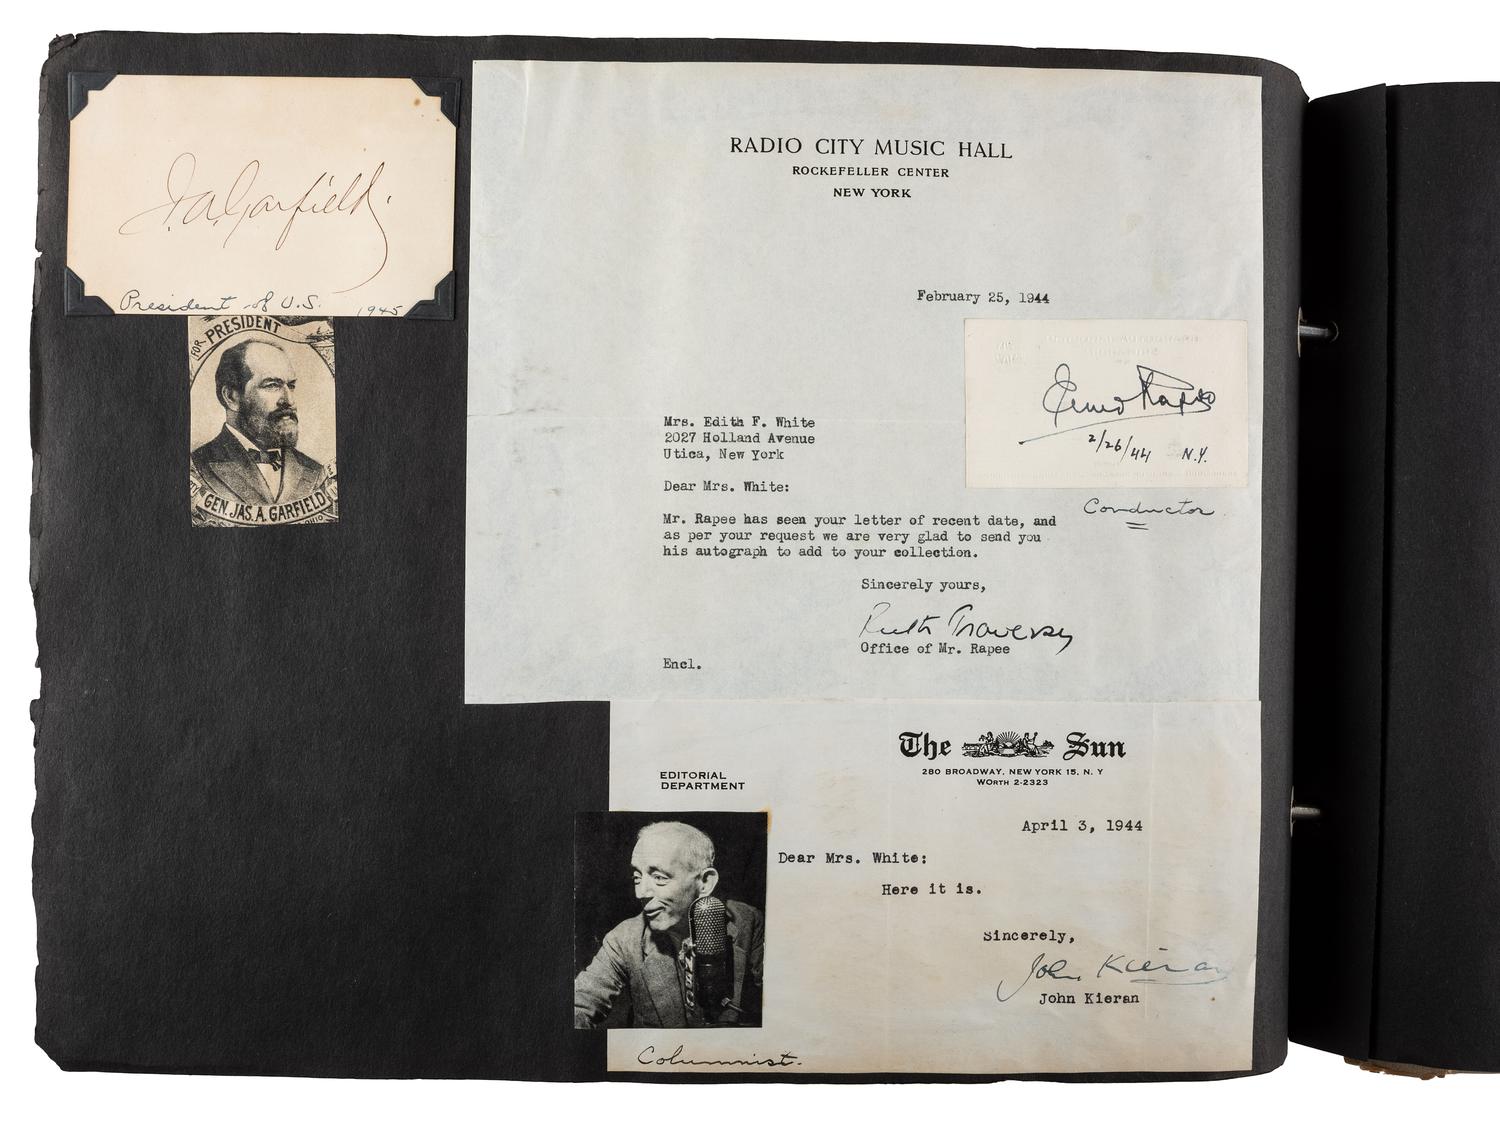 J. A. Garfield.
President of U.S. 1945
FOR PRESIDENT
GEN. JAS. A. GARFIELD
OHIO
RADIO CITY MUSIC HALL
ROCKEFELLER CENTER
NEW YORK
February 25, 1944
Erno Rapee
2/26/44 N.Y.
Conductor
Mrs. Edith F. White
2027 Holland Avenue
Utica, New York
Dear Mrs. White:
Mr. Rapee has seen your letter of recent date, and
as per your request we are very glad to send you
his autograph to add to your collection.
Sincerely yours,
Ruth Traversy
Office of Mr. Rapee
Encl.
The Sun
280 BROADWAY, NEW YORK 15, N. Y
WORTH 2-2323
EDITORIAL
DEPARTMENT
April 3, 1944
Dear Mrs. White:
Here it is.
Sincerely,
John Kieran
John Kieran
NBC
Columnist.